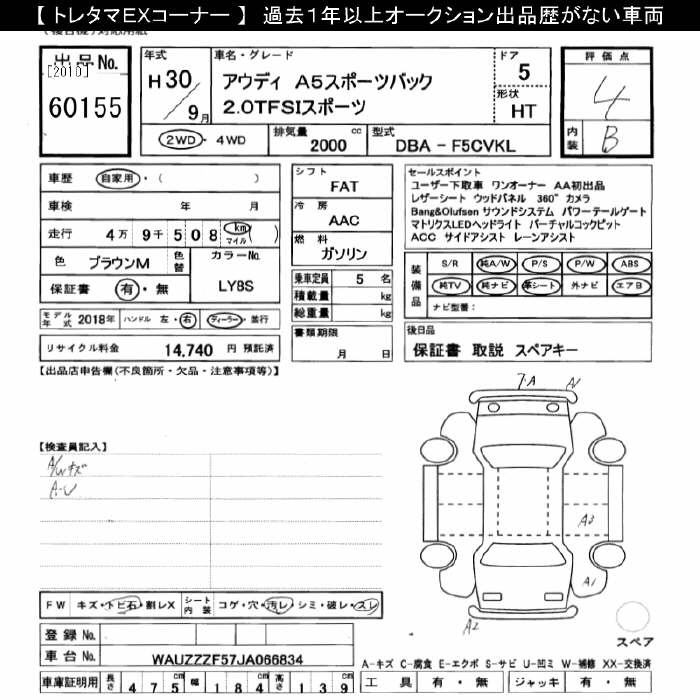 【 トレタマEXコーナー 】 過去１年以上オークション出品歴がない車両
出品No.
[2010]
60155
年式
H30/9月
車名・グレード
アウディ A5スポーツバック
2.0TFSIスポーツ
ドア
5
形状
HT
2WD・4WD
排気量 2000 cc
型式 DBA - F5CVKL
評価点
4
内装 B
車歴 自家用・( )
車検 年 月
走行 4万9千508 km マイル ( )
色 ブラウンM 色替
カラーNo. LY8S
保証書 有・無
モデル年式 2018年 ハンドル 左・右 ディーラー・並行
リサイクル料金 14,740 円 預託済
シフト
FAT
冷房
AAC
燃料
ガソリン
乗車定員 5 名
積載量 kg
総重量 kg
書類期限
月 日
セールスポイント
ユーザー下取車 ワンオーナー AA初出品
レザーシート ウッドパネル 360°カメラ
Bang&Olufsenサウンドシステム パワーテールゲート
マトリクスLEDヘッドライト バーチャルコックピット
ACC サイドアシスト レーンアシスト
装備品
S/R 純A/W P/S P/W ABS
純TV 純ナビ 革シート 外ナビ エアB
ナビ型番:
後日品
保証書 取説 スペアキー
【出品店申告欄(不良箇所・欠品・注意事項等)】
【検査員記入】
A/Wキズ
A・U
7-A
A2
A3
A1
FW キズ・トビ石・割レX
シート内装 コゲ・穴・汚レ・シミ・破レ・スレ
登録No.
車台No. WAUZZZF57JA066834
車庫証明用 長さ 475cm 幅 184cm 高さ 139cm
スペア
A-キズ C-腐食 E-エクボ S-サビ U-凹ミ W-補修 XX-交換済
工具 有・無 ジャッキ 有・無